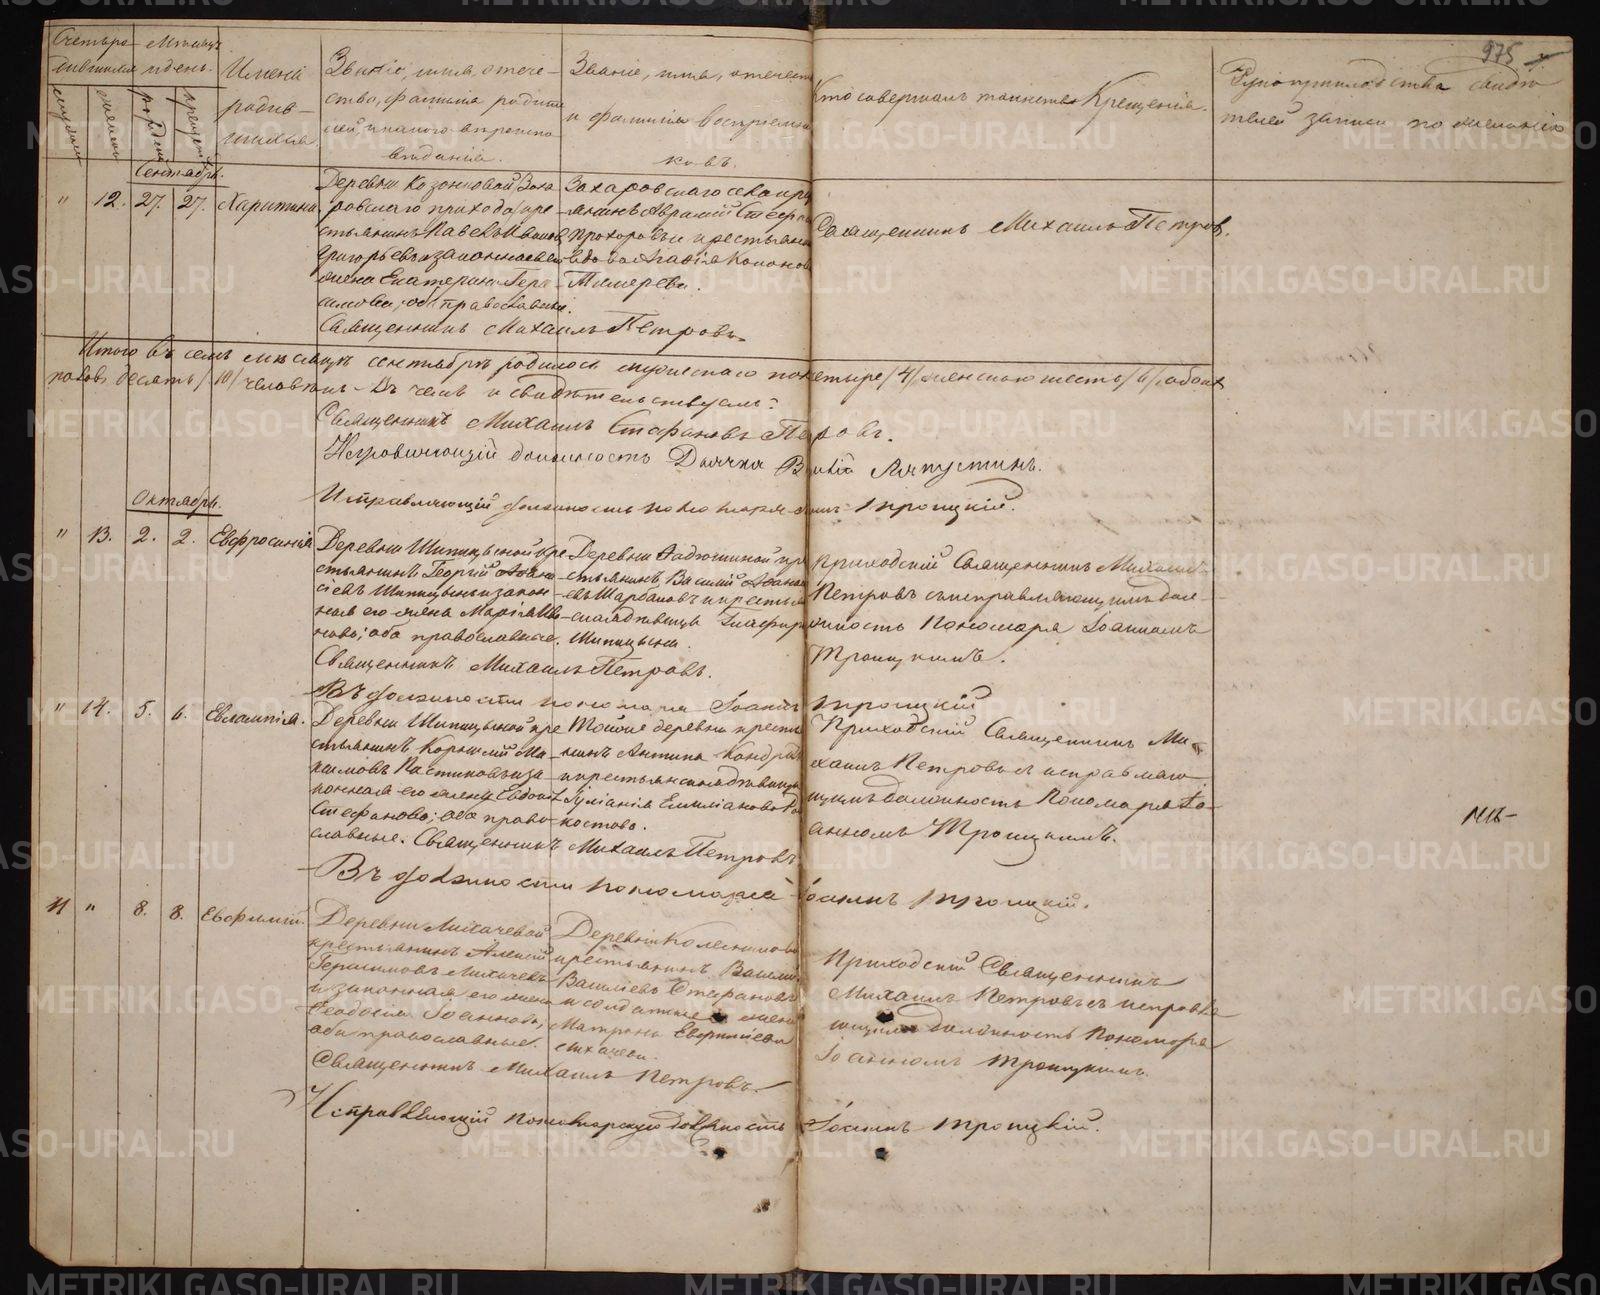 975
Счетъ ро- Мѣсяцъ
дившихся и день.
мужеск
женск
рожден
крещен
Имена
родив-
шихся
Званіе, имя, отече-
ство, фамилія родите
лей, и какого вѣроиспо
вѣданія.
Званіе, имя, отечест
и фамилія воспріемни
ковъ.
Кто совершалъ таинство Крещенія.
Рукоприкладства свидѣ
телей записи по желанію
Сентябрь.
" 12. 27. 27. Харитина
Деревни Казанковой Заха
ровскаго прихода кре
стьянинъ Павелъ Ивановъ
Григорьевъ и законная его
жена Екатерина Гера-
симова; оба православные.
Священникъ Михаилъ Петровъ.
Захаровскаго села кр
янинъ Авраамій Стеф
Прохоровъ и крестьянс
вдова Агафія Конанов
Священникъ Михаилъ Петровъ.
Итого въ семъ мѣсяцѣ сентябрѣ родилось мужескаго пола четыре /4/ женскаго шесть /6/ обоихъ
половъ десять /10/ человѣкъ. Въ чемъ и свидѣтельствуемъ:
Священникъ Михаилъ Стефановъ Петровъ.
Исправляющій должность Дьячка Ляпустинъ.
Исправляющій должность пономаря Іоаннъ Троицкій.
Октябрь.
" 13. 2. 2. Евфросинія
Деревни Шипицыной кре
стьянинъ Георгій Аѳана
сіевъ Шипицынъ и закон-
ная его жена Марія Ива
нова; оба православные.
Священникъ Михаилъ Петровъ.
Въ должности пономаря Іоаннъ Троицкій
крестьянинъ Василій Аѳанас
евъ и крестья
ская дѣвица Глафира
Шипицына.
Приходскій Священникъ Михаилъ
Петровъ съ исправляющимъ дол-
жность Пономаря Іоанномъ
Троицкимъ.
" 14. 5. 6. Евлампія.
Деревни Шипицыной кре
стьянинъ Корнилій Ма-
ксимовъ и за-
конная его жена Евдокія
Стефанова; оба право-
славные. Священникъ Михаилъ Петровъ
Въ должности пономаря Іоаннъ Троицкій.
Тойже деревни кресть
янинъ Антипа Кондрат
и крестьянская дѣвица
Іуліанія Емиліанова
Приходскій Священникъ Ми-
хаилъ Петровъ съ исправляю-
щимъ должность Пономаря Іо-
анномъ Троицкимъ.
11 " 8. 8. Евфимій.
Деревни Лихачевой
крестьянинъ Алексій
Герасимовъ Лихачевъ
и законная его жена
Ѳеодосія Іоаннова,
оба православные.
Священникъ Михаилъ Петровъ.
Исправляющій пономарскую должность Іоаннъ Троицкій.
Деревни Колесниковой
крестьянинъ Василій
Васильевъ Стефановъ
и солдатская жена
Матрона Евфиміева
Лихачева.
Приходскій Священникъ
Михаилъ Петровъ съ исправля
ющимъ должность Пономоря
Іоанномъ Троицкимъ.